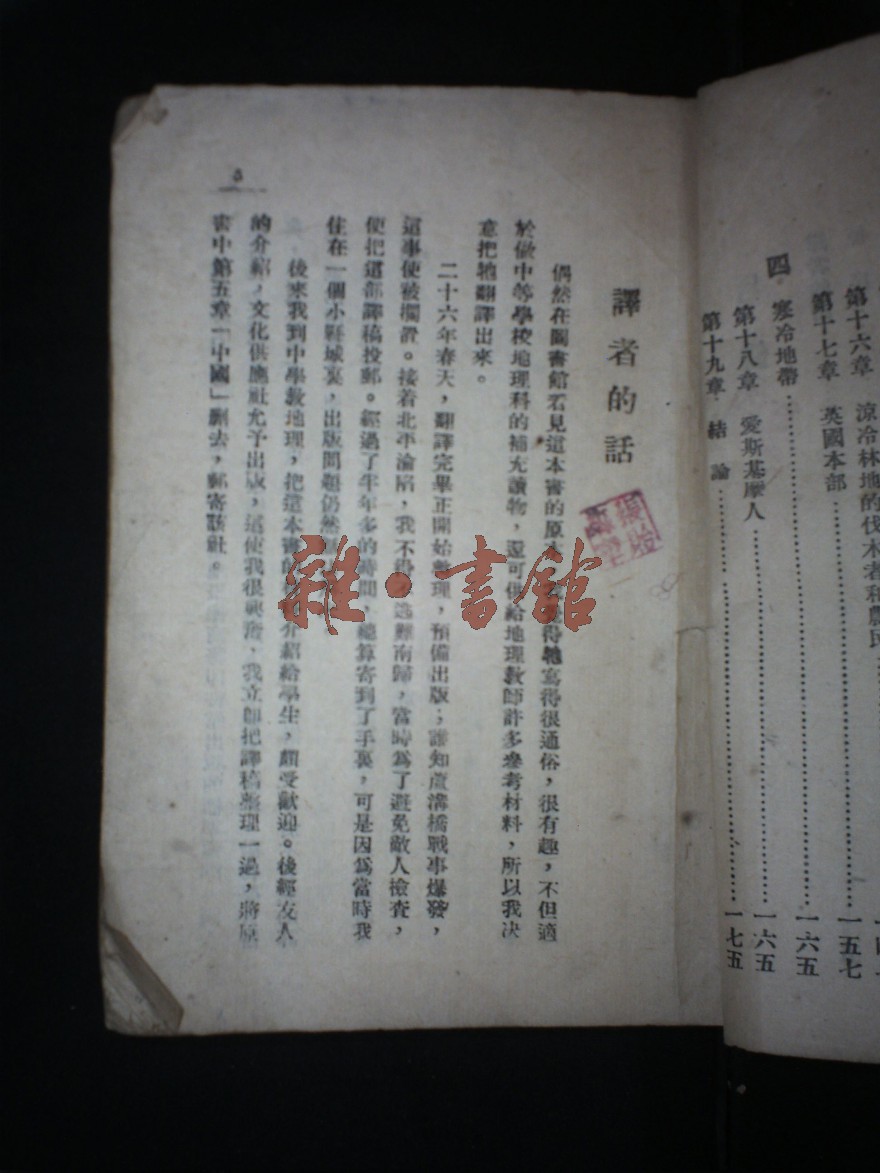 第十六章 涼冷林地的伐木者和農民
第十七章 英國本部……一五七
四 寒冷地帶……一六五
第十八章 愛斯基摩人……一六五
第十九章 結論……一七五
譯者的話
偶然在圖書館看見這本書的原本 得牠寫得很通俗,很有趣,不但適
於做中等學校地理科的補充讀物,還可供給地理教師許多參考材料,所以我决
意把牠翻譯出來。
二十六年春天,翻譯完畢正開始整理,預備出版;誰知蘆溝橋戰事爆發,
這事便被擱置。接着北平淪陷,我不 逃難南歸,當時爲了避免敵人檢查,
便把這部譯稿投郵。經過了半年多的時間,總算寄到了手裏,可是因爲當時我
住在一個小縣城裏,出版問題仍然
後來我到中學教地理,把這本書的 介紹給學生,頗受歡迎。後經友人
的介紹,文化供應社允予出版,這使我很興奮,我立即把譯稿整理一過,將原
書中第五章「中國」删去,郵寄該社。
5
雜·書館